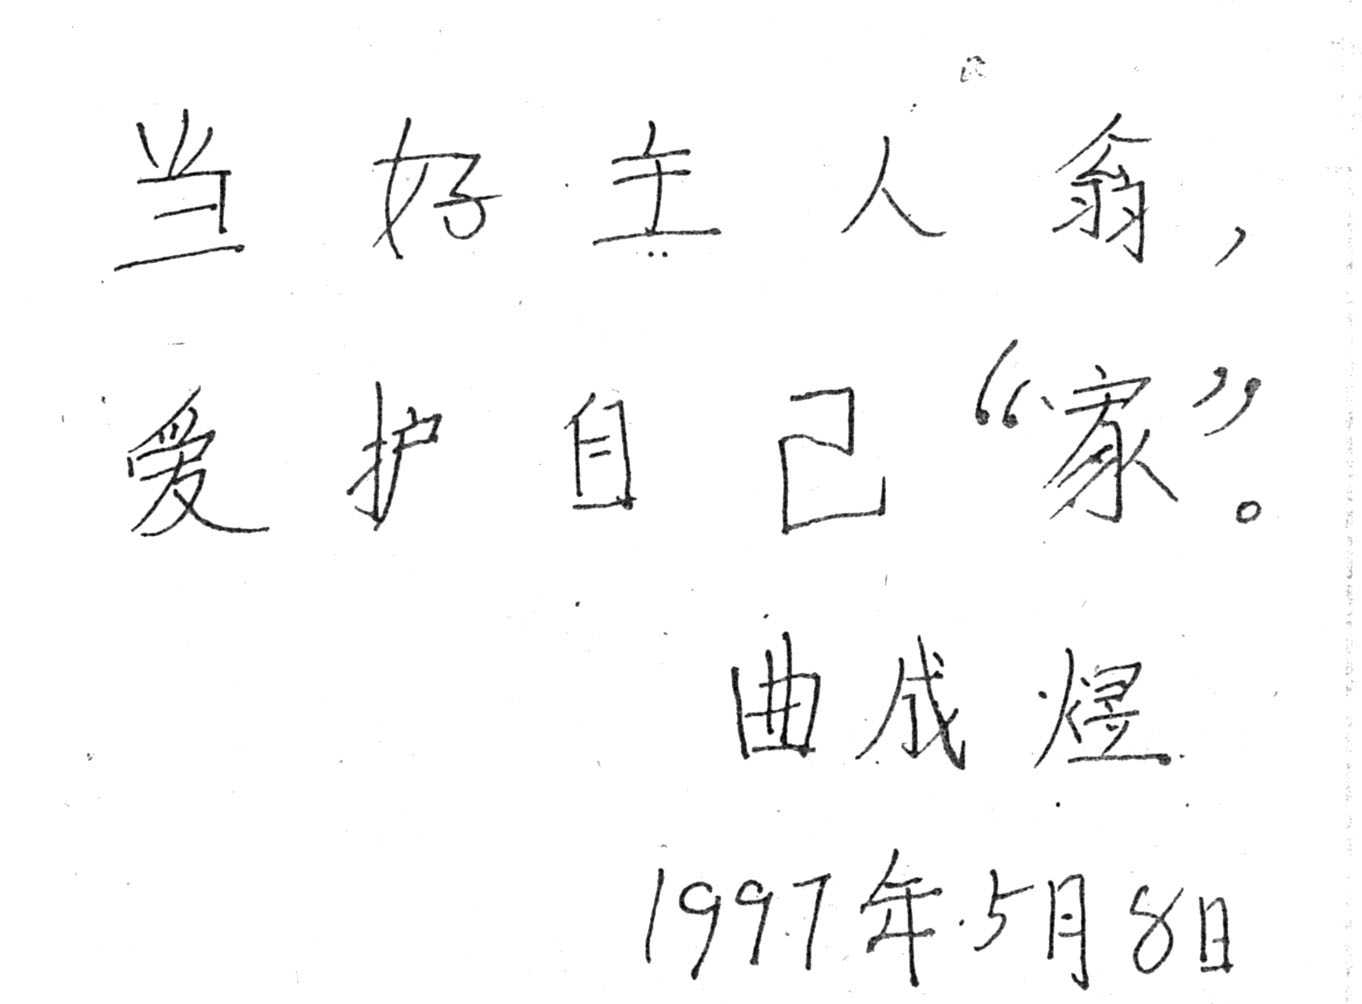 当好主人翁，
爱护自己“家”。
曲成煜
1997年5月8日